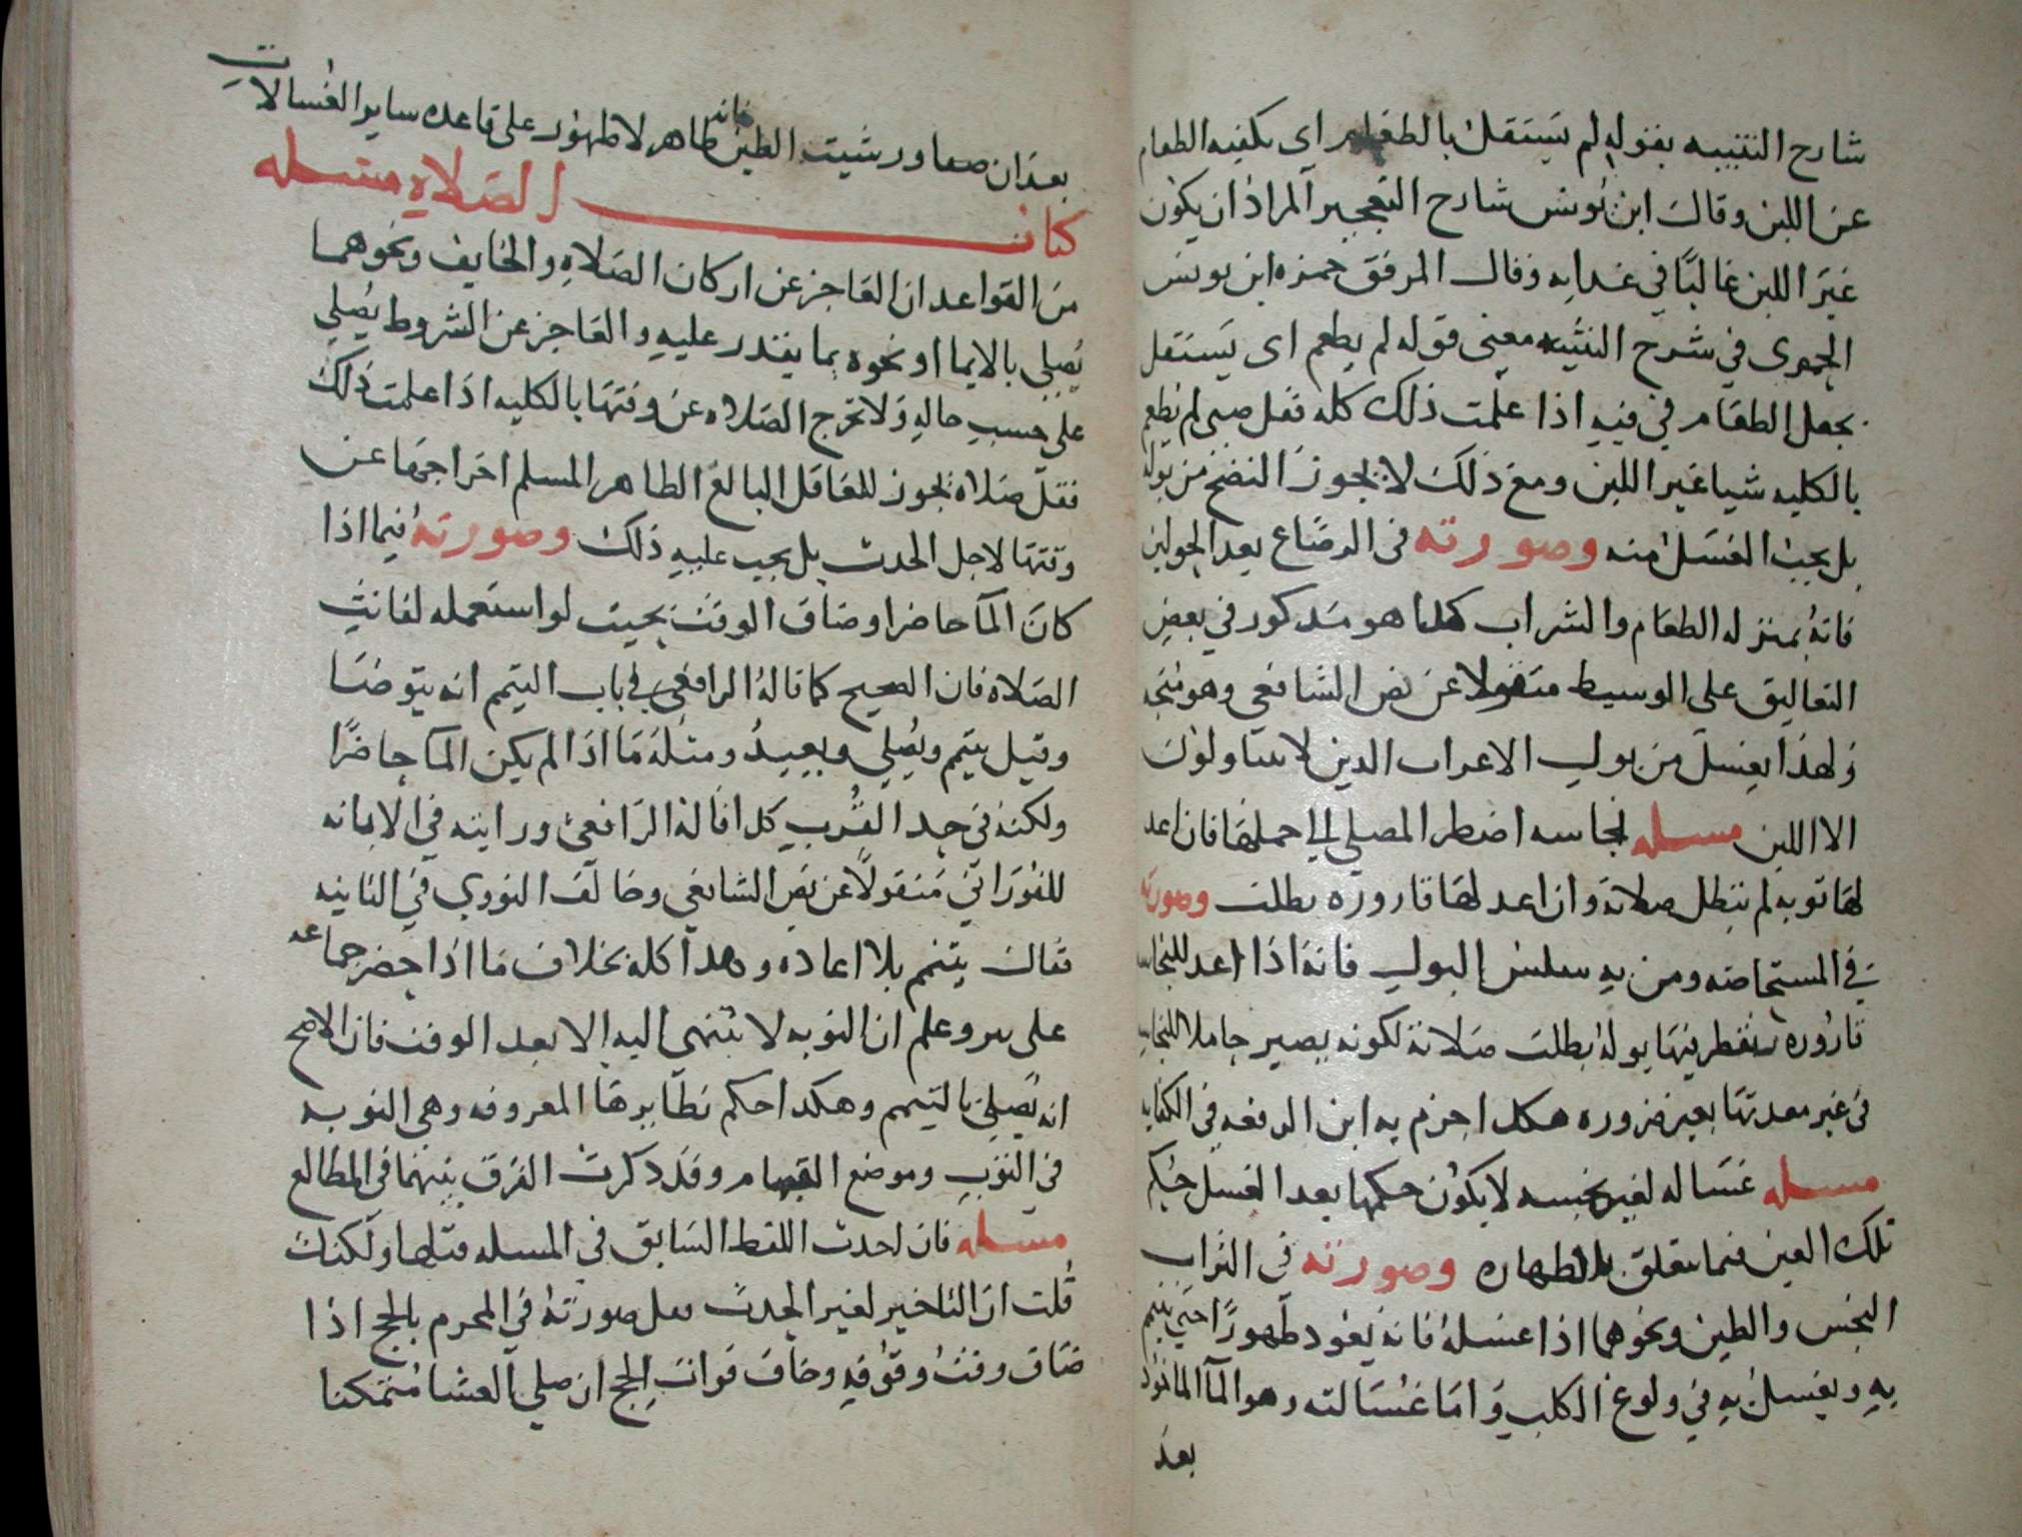 شارح التنبيه بقوله لم يستقل بالطعام اى يكفيه الطعام
عن اللبن وقال ابن يونس شارح التعجيز المراد ان يكون
غير اللبن غالبا في غدايه وقال الموفق حمزه ابن يونس
الحموى في شرح التنبيه معنى قوله لم يطعم اى يستقل
بجعل الطعام في فيه اذا علمت ذلك كله فقل صبى لم يطعم
بالكليه شيا غير اللبن ومع ذلك لا يجوز النضح من بوله
بل يجب الغسل منه وصورته فى الرضاع بعد الحولين
فانه بمنزله الطعام والشراب كما هو مذكور في بعض
التعاليق على الوسيط منقولا عن نص الشافعى وهو متجه
ولهذا يغسل من بول الاعراب الذين لا يتناولون
الا اللبن مسله نجاسه اضطر المصلي الى حملها فان اعد
لها ثوبه لم تبطل صلاته وان اعد لها قاروره بطلت وصورته
في المستحاضه ومن به سلس البول فانه اذا اعد للنجاسه
قاروره يتقطر فيها بوله بطلت صلاته لكونه يصير حاملا للنجاسه
فى غير معدنها بغير ضروره هكذا جزم به ابن الرفعه في الكفايه
مسله غساله لغير نجسه لا يكون حكمها بعد الغسل حكم
تلك العين فيما يتعلق بالطهاره وصورته في التراب
النجس والطين ونحوهما اذا غسله فانه يعود طهورا حتى يتيمم
به ويغسل به في ولوغ الكلب واما غسالته وهو الماء الماخوذ
بعد
بعد ان صفا ورسبت الطين فانه طاهر لا طهور على قاعده ساير الغسالات
كتاب الصلاه مسله
من القواعد ان العاجز عن اركان الصلاه والخايف ونحوهما
يصلي بالايما او نحوه بما يقدر عليه والعاجز عن الشروط يصلي
على حسب حاله ولا تخرج الصلاه عن وقتها بالكليه اذا علمت ذلك
فقل صلاه يجوز للعاقل البالغ الطاهر المسلم اخراجها عن
وقتها لاجل الحدث بل يجب عليه ذلك وصورته فيما اذا
كان الما حاضرا وضاق الوقت بحيث لو استعمله لفاتت
الصلاه فان الصحيح كما قاله الرافعى فى باب التيمم انه يتوضا
وقيل يتيمم ويصلي ويعيد ومثله ما اذا لم يكن الما حاضرا
ولكنه في حد القرب كذا قاله الرافعى ورايته في الابانه
للفوراني منقولا عن نص الشافعي وخالف النووي في الثانيه
فقال يتيمم بلا اعاده وهذا كله بخلاف ما اذا حضر جماعه
على بير وعلم ان النوبه لا تنتهى اليه الا بعد الوقت فان الاصح
انه يصلى بالتيمم وهكذا حكم نظايرها المعروفه وهى النوبه
في الثوب وموضع القيام وقد ذكرت الفرق بينهما في المطالع
مسله فان لحدث اللفظ السابق فى المسله قبلها ولكنك
قلت ان التاخير لغير الحدث فقل صورته في المحرم بالحج اذا
ضاق وقت وقوفه وخاف فوات الحج ان صلي العشا متمكنا